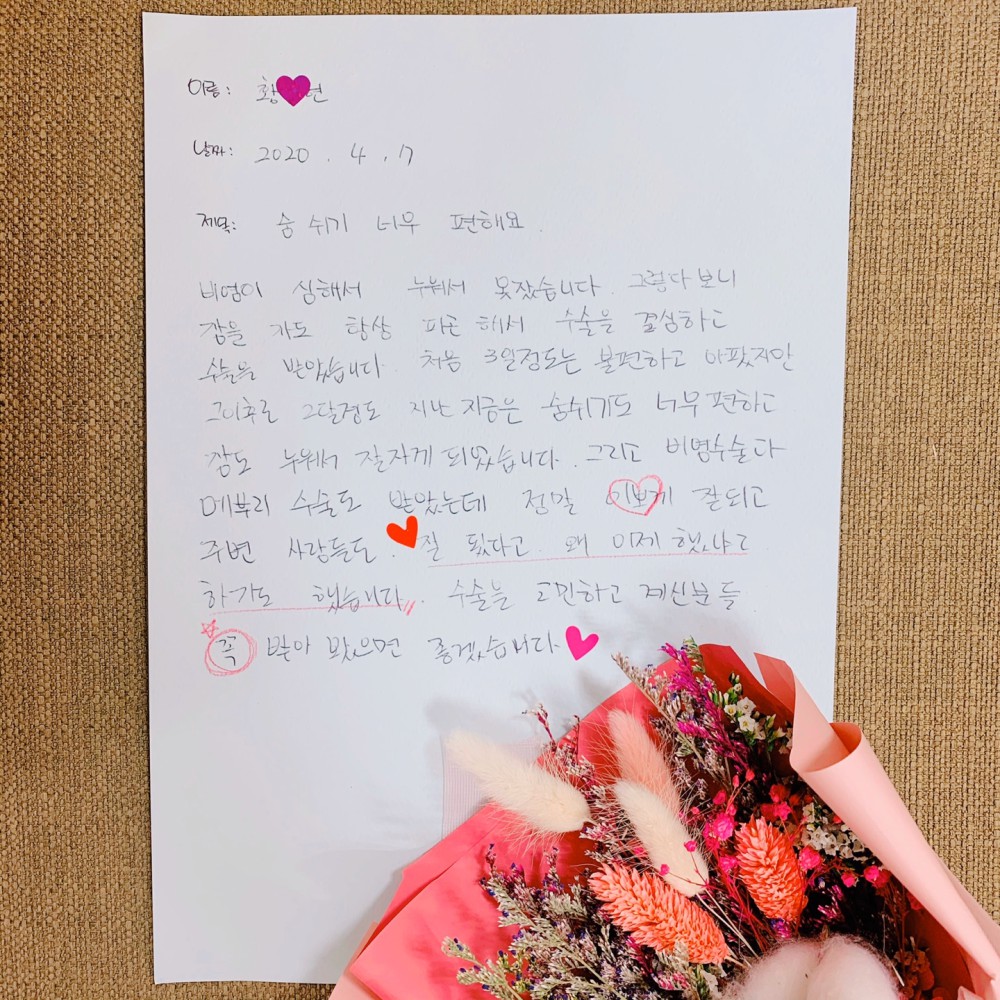 이름: 황 연
날짜: 2020. 4. 17
제목: 숨 쉬기 너무 편해요.
비염이 심해서 누워서 못잤습니다. 그렇다보니
잠을 자도 항상 피곤해서 수술을 결심하고
수술을 받았습니다. 처음 3일정도는 불편하고 아팠지만
그이후로 2달정도 지난 지금은 숨쉬기도 너무 편하고
잠도 누워서 잘자게 되었습니다. 그리고 비염수술다
메부리 수술도 받았는데 정말 이쁘게 잘되고
주변 사람들도. 잘 됬다고. 왜 이제 했냐고
하기도 했습니다. 수술을 고민하고 계신분들
꼭 받아 봤으면 좋겠습니다